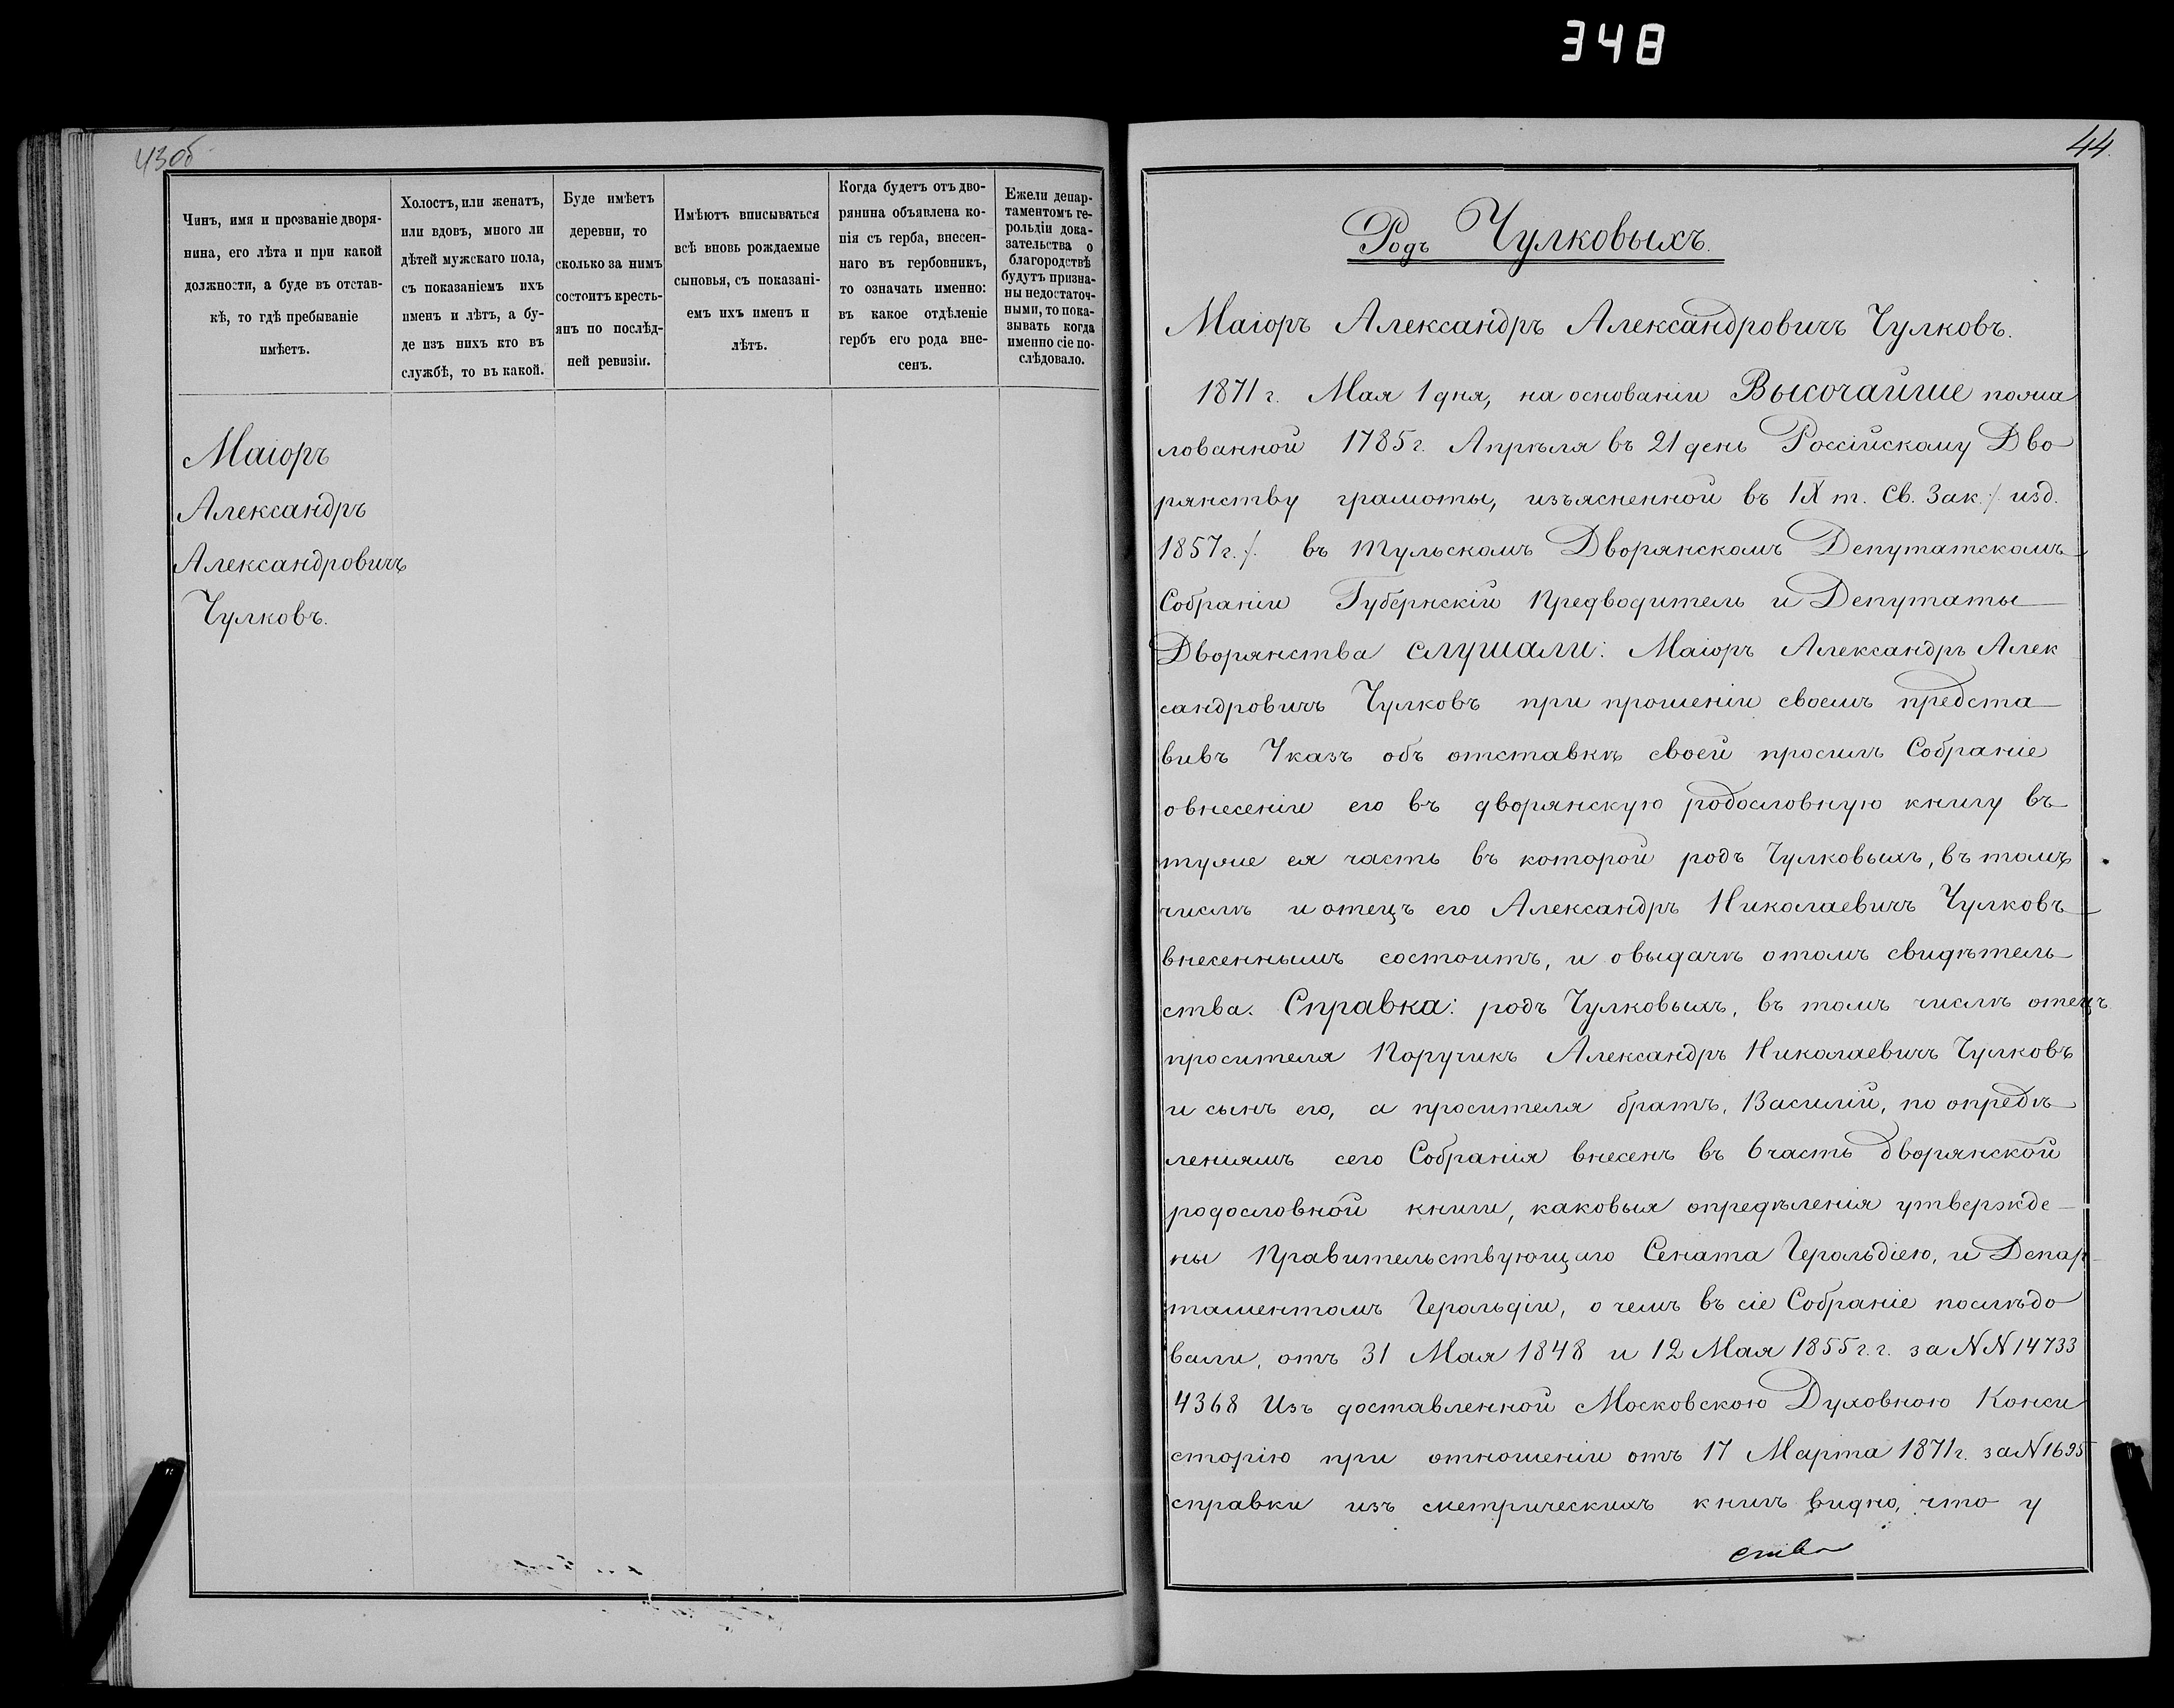 348
43об
Чинъ, имя и прозваніе дворя-
нина, его лѣта и при какой
должности, а буде въ отстав-
кѣ, то гдѣ пребываніе
имѣетъ.
Холостъ, или женатъ,
или вдовъ, много ли
дѣтей мужскаго пола,
съ показаніемъ ихъ
именъ и лѣтъ, а бу-
де изъ нихъ кто въ
службѣ, то въ какой.
Буде имѣетъ
деревни, то
сколько за нимъ
состоитъ кресть-
янъ по послѣд-
ней ревизіи.
Имѣютъ вписываться
всѣ вновь рождаемые
сыновья, съ показані-
емъ ихъ именъ и
лѣтъ.
Когда будетъ отъ дво-
рянина объявлена ко-
пія съ герба, внесен-
наго въ гербовникъ,
то означать именно:
въ какое отдѣленіе
гербъ его рода вне-
сенъ.
Ежели депар-
таментомъ ге-
рольдіи дока-
зательства о
благородствѣ
будутъ призна-
ны недостаточ-
ными, то пока-
зывать когда
именно сіе по-
слѣдовало.
Маіоръ
Александръ
Александровичъ
Чулковъ.
44.
Родъ Чулковыхъ.
Маіоръ Александръ Александровичъ Чулковъ.
1871 г. Мая 1 дня, на основаніи Высочайше пожа
лованной 1785 г. Апрѣля въ 21 день Россійскому Дво
рянству грамоты, изъясненной въ IX т. Св. Зак. /. изд.
1857 г. /. въ Тульскомъ Дворянскомъ Депутатскомъ
Собраніи Губернскій Предводитель и Депутаты
Дворянства слушали: Маіоръ Александръ Алек
сандровичъ Чулковъ при прошеніи своемъ предста
вивъ Указъ объ отставкѣ своей просилъ Собраніе
о внесеніи его въ дворянскую родословную книгу въ
туже ея часть въ которой родъ Чулковыхъ, въ томъ
числѣ и отецъ его Александръ Николаевичъ Чулковъ
внесеннымъ состоитъ, и о выдачѣ о томъ свидѣтель
ства. Справка: родъ Чулковыхъ, въ томъ числѣ отецъ
просителя Поручикъ Александръ Николаевичъ Чулковъ
и сынъ его, а просителя братъ, Василій, по опредѣ
леніямъ сего Собранія внесенъ въ 6 часть дворянской
родословной книги, каковыя опредѣленія утвержде-
ны Правительствующаго Сената Герольдіею, и Депар-
таментомъ Герольдіи, о чемъ въ сіе Собраніе послѣдо
вали, отъ 31 Мая 1848 и 12 Мая 1855 г.г. за NN 14733
4368 Изъ доставленной Московскою Духовною Конси
сторію при отношеніи отъ 17 Марта 1871 г. за N 1695
справки изъ метрическихъ книгъ видно, что у